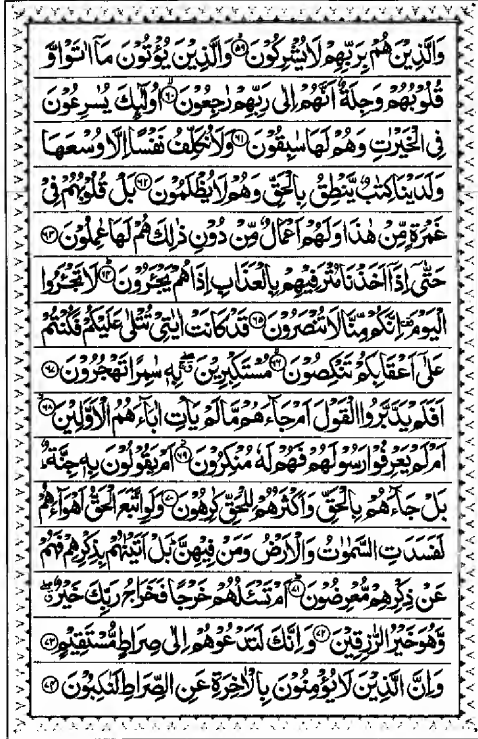 وَالَّذِيْنَ هُمْ بِرَبِّهِمْ لَا يُشْرِكُوْنَ ۙ﴿۵۹﴾ وَالَّذِيْنَ يُؤْتُوْنَ مَاۤ اٰتَوْا وَّ
قُلُوْبُهُمْ وَجِلَةٌ اَنَّهُمْ اِلٰى رَبِّهِمْ رٰجِعُوْنَ ۙ﴿۶۰﴾ اُولٰٓئِكَ يُسٰرِعُوْنَ
فِى الْخَيْرٰتِ وَهُمْ لَهَا سٰبِقُوْنَ ﴿۶۱﴾ وَلَا نُكَلِّفُ نَفْسًا اِلَّا وُسْعَهَا
وَلَدَيْنَا كِتٰبٌ يَّنْطِقُ بِالْحَقِّ وَهُمْ لَا يُظْلَمُوْنَ ﴿۶۲﴾ بَلْ قُلُوْبُهُمْ فِىْ
غَمْرَةٍ مِّنْ هٰذَا وَلَهُمْ اَعْمَالٌ مِّنْ دُوْنِ ذٰلِكَ هُمْ لَهَا عٰمِلُوْنَ ﴿۶۳﴾
حَتّٰۤى اِذَاۤ اَخَذْنَا مُتْرَفِيْهِمْ بِالْعَذَابِ اِذَا هُمْ يَجْـَٔرُوْنَ ؕ﴿۶۴﴾ لَا تَجْـَٔرُوا
الْيَوْمَ ۫ اِنَّكُمْ مِّنَّا لَا تُنْصَرُوْنَ ﴿۶۵﴾ قَدْ كَانَتْ اٰيٰتِىْ تُتْلٰى عَلَيْكُمْ فَكُنْتُمْ
عَلٰۤى اَعْقَابِكُمْ تَنْكِصُوْنَ ۙ﴿۶۶﴾ مُسْتَكْبِرِيْنَ ۖ بِهٖ سٰمِرًا تَهْجُرُوْنَ ﴿۶۷﴾
اَفَلَمْ يَدَّبَّرُوا الْقَوْلَ اَمْ جَآءَهُمْ مَّا لَمْ يَاْتِ اٰبَآءَهُمُ الْاَوَّلِيْنَ ﴿۶۸﴾
اَمْ لَمْ يَعْرِفُوْا رَسُوْلَهُمْ فَهُمْ لَهٗ مُنْكِرُوْنَ ۫﴿۶۹﴾ اَمْ يَقُوْلُوْنَ بِهٖ جِنَّةٌ ؕ
بَلْ جَآءَهُمْ بِالْحَقِّ وَاَكْثَرُهُمْ لِلْحَقِّ كٰرِهُوْنَ ﴿۷۰﴾ وَلَوِ اتَّبَعَ الْحَقُّ اَهْوَآءَهُمْ
لَفَسَدَتِ السَّمٰوٰتُ وَالْاَرْضُ وَمَنْ فِيْهِنَّ ؕ بَلْ اَتَيْنٰهُمْ بِذِكْرِهِمْ فَهُمْ
عَنْ ذِكْرِهِمْ مُّعْرِضُوْنَ ؕ﴿۷۱﴾ اَمْ تَسْـَٔلُهُمْ خَرْجًا فَخَرَاجُ رَبِّكَ خَيْرٌ ۖ
وَّهُوَ خَيْرُ الرّٰزِقِيْنَ ﴿۷۲﴾ وَاِنَّكَ لَتَدْعُوْهُمْ اِلٰى صِرَاطٍ مُّسْتَقِيْمٍ ﴿۷۳﴾
وَاِنَّ الَّذِيْنَ لَا يُؤْمِنُوْنَ بِالْاٰخِرَةِ عَنِ الصِّرَاطِ لَنٰكِبُوْنَ ﴿۷۴﴾